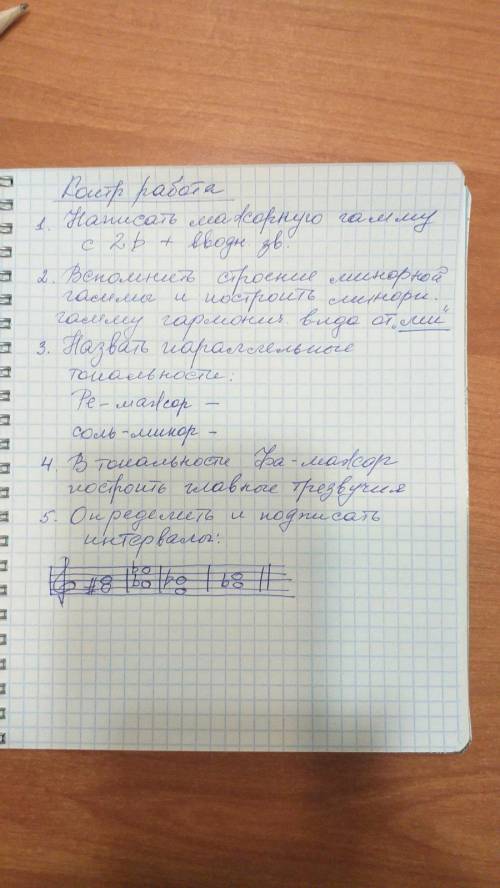 Контр работа
1. Написать мажорную гамму
с 2♭ + вводн зв.
2. Вспомнить строение минорной
гаммы и построить минорн.
гамму гармонич. вида от „ми"
3. Назвать параллельные
тональности:
Ре-мажор –
соль-минор –
4. В тональности Фа-мажор
построить главные трезвучия
5. Определить и подписать
интервалы: